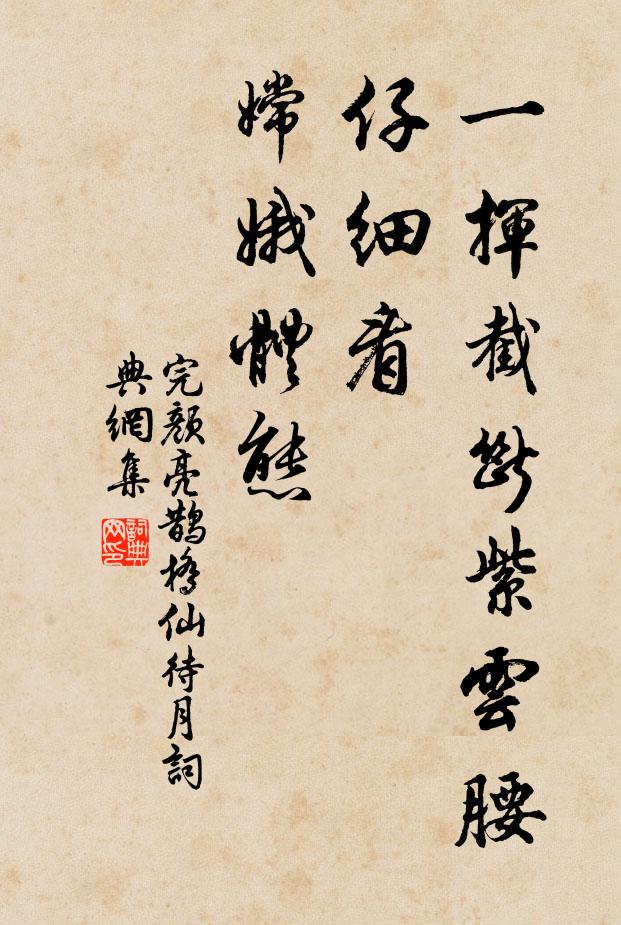 一揮截斷紫雲腰
仔細看
嫦娥體態
完顏亮鵲橋仙待月詞
典網集
詞典網印